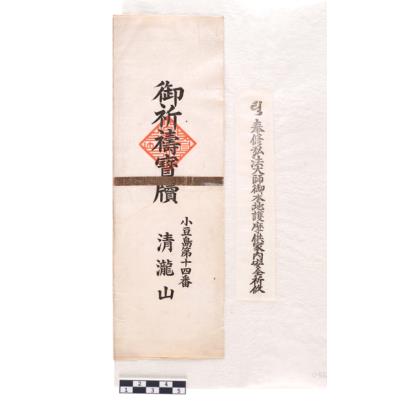 御祈禱寶牘
小豆島第十四番
清瀧山
奉修弘法大師御本地護摩供家内安全祈攸